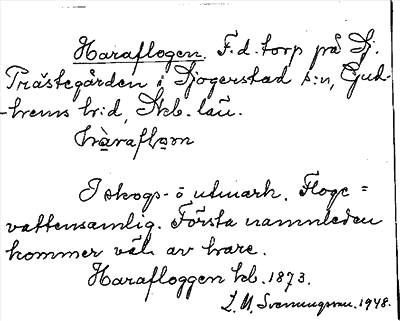 Haraflogen. F.d. torp på Sj.
Trästegården i Sjogerstad s:n, Gud-
-hems hr:d, Skb. län.
hàraflɷn
I skogs- o utmark. Floge =
vattensamlig. Första namnleden
kommer väl av hare.
Harafloggen kb. 1873.
L. M. Svenungsson. 1948.